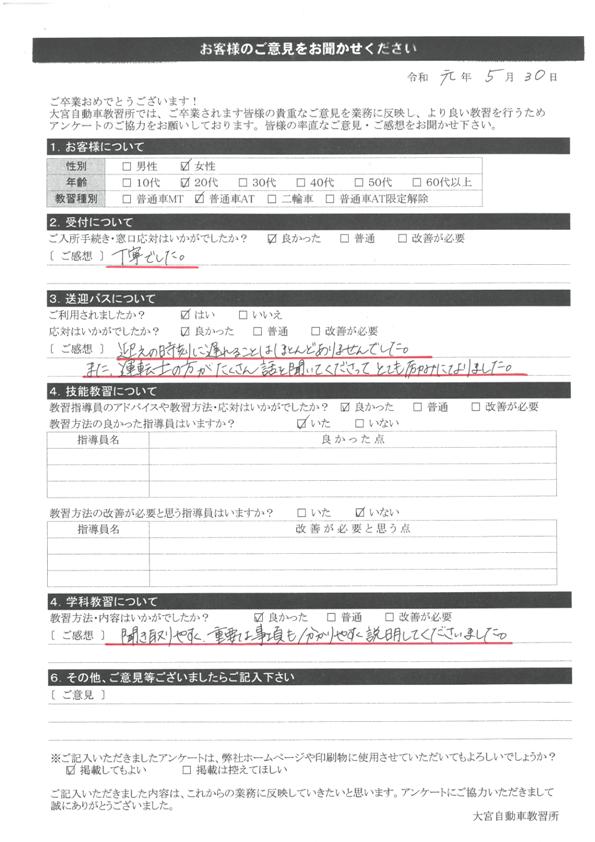 お客様のご意見をお聞かせください
令和 元 年 5 月 30 日
ご卒業おめでとうございます！
大宮自動車教習所では、ご卒業されます皆様の貴重なご意見を業務に反映し、より良い教習を行うため
アンケートのご協力をお願いしております。皆様の率直なご意見・ご感想をお聞かせ下さい。
1. お客様について
性別 □ 男性 ☑ 女性
年齢 □ 10代 ☑ 20代 □ 30代 □ 40代 □ 50代 □ 60代以上
教習種別 □ 普通車MT ☑ 普通車AT □ 二輪車 □ 普通車AT限定解除
2. 受付について
ご入所手続き・窓口応対はいかがでしたか？ ☑ 良かった □ 普通 □ 改善が必要
[ ご感想 ] 丁寧でした。
3. 送迎バスについて
ご利用されましたか？ ☑ はい □ いいえ
応対はいかがでしたか？ ☑ 良かった □ 普通 □ 改善が必要
[ ご感想 ] 迎えの時刻に遅れることはほとんどありませんでした。
また、運転士の方がたくさん話を聞いてくださってとても励みになりました。
4. 技能教習について
教習指導員のアドバイスや教習方法・応対はいかがでしたか？ ☑ 良かった □ 普通 □ 改善が必要
教習方法の良かった指導員はいますか？ ☑ いた □ いない
指導員名 良かった点
教習方法の改善が必要と思う指導員はいますか？ □ いた ☑ いない
指導員名 改善が必要と思う点
4. 学科教習について
教習方法・内容はいかがでしたか？ ☑ 良かった □ 普通 □ 改善が必要
[ ご感想 ] 聞き取りやすく、重要な事項も分かりやすく説明してくださいました。
6. その他、ご意見等ございましたらご記入下さい
[ ご意見 ]
※ご記入いただきましたアンケートは、弊社ホームページや印刷物に使用させていただいてもよろしいでしょうか？
☑ 掲載してもよい □ 掲載は控えてほしい
ご記入いただきました内容は、これからの業務に反映していきたいと思います。アンケートにご協力いただきまして
誠にありがとうございました。
大宮自動車教習所